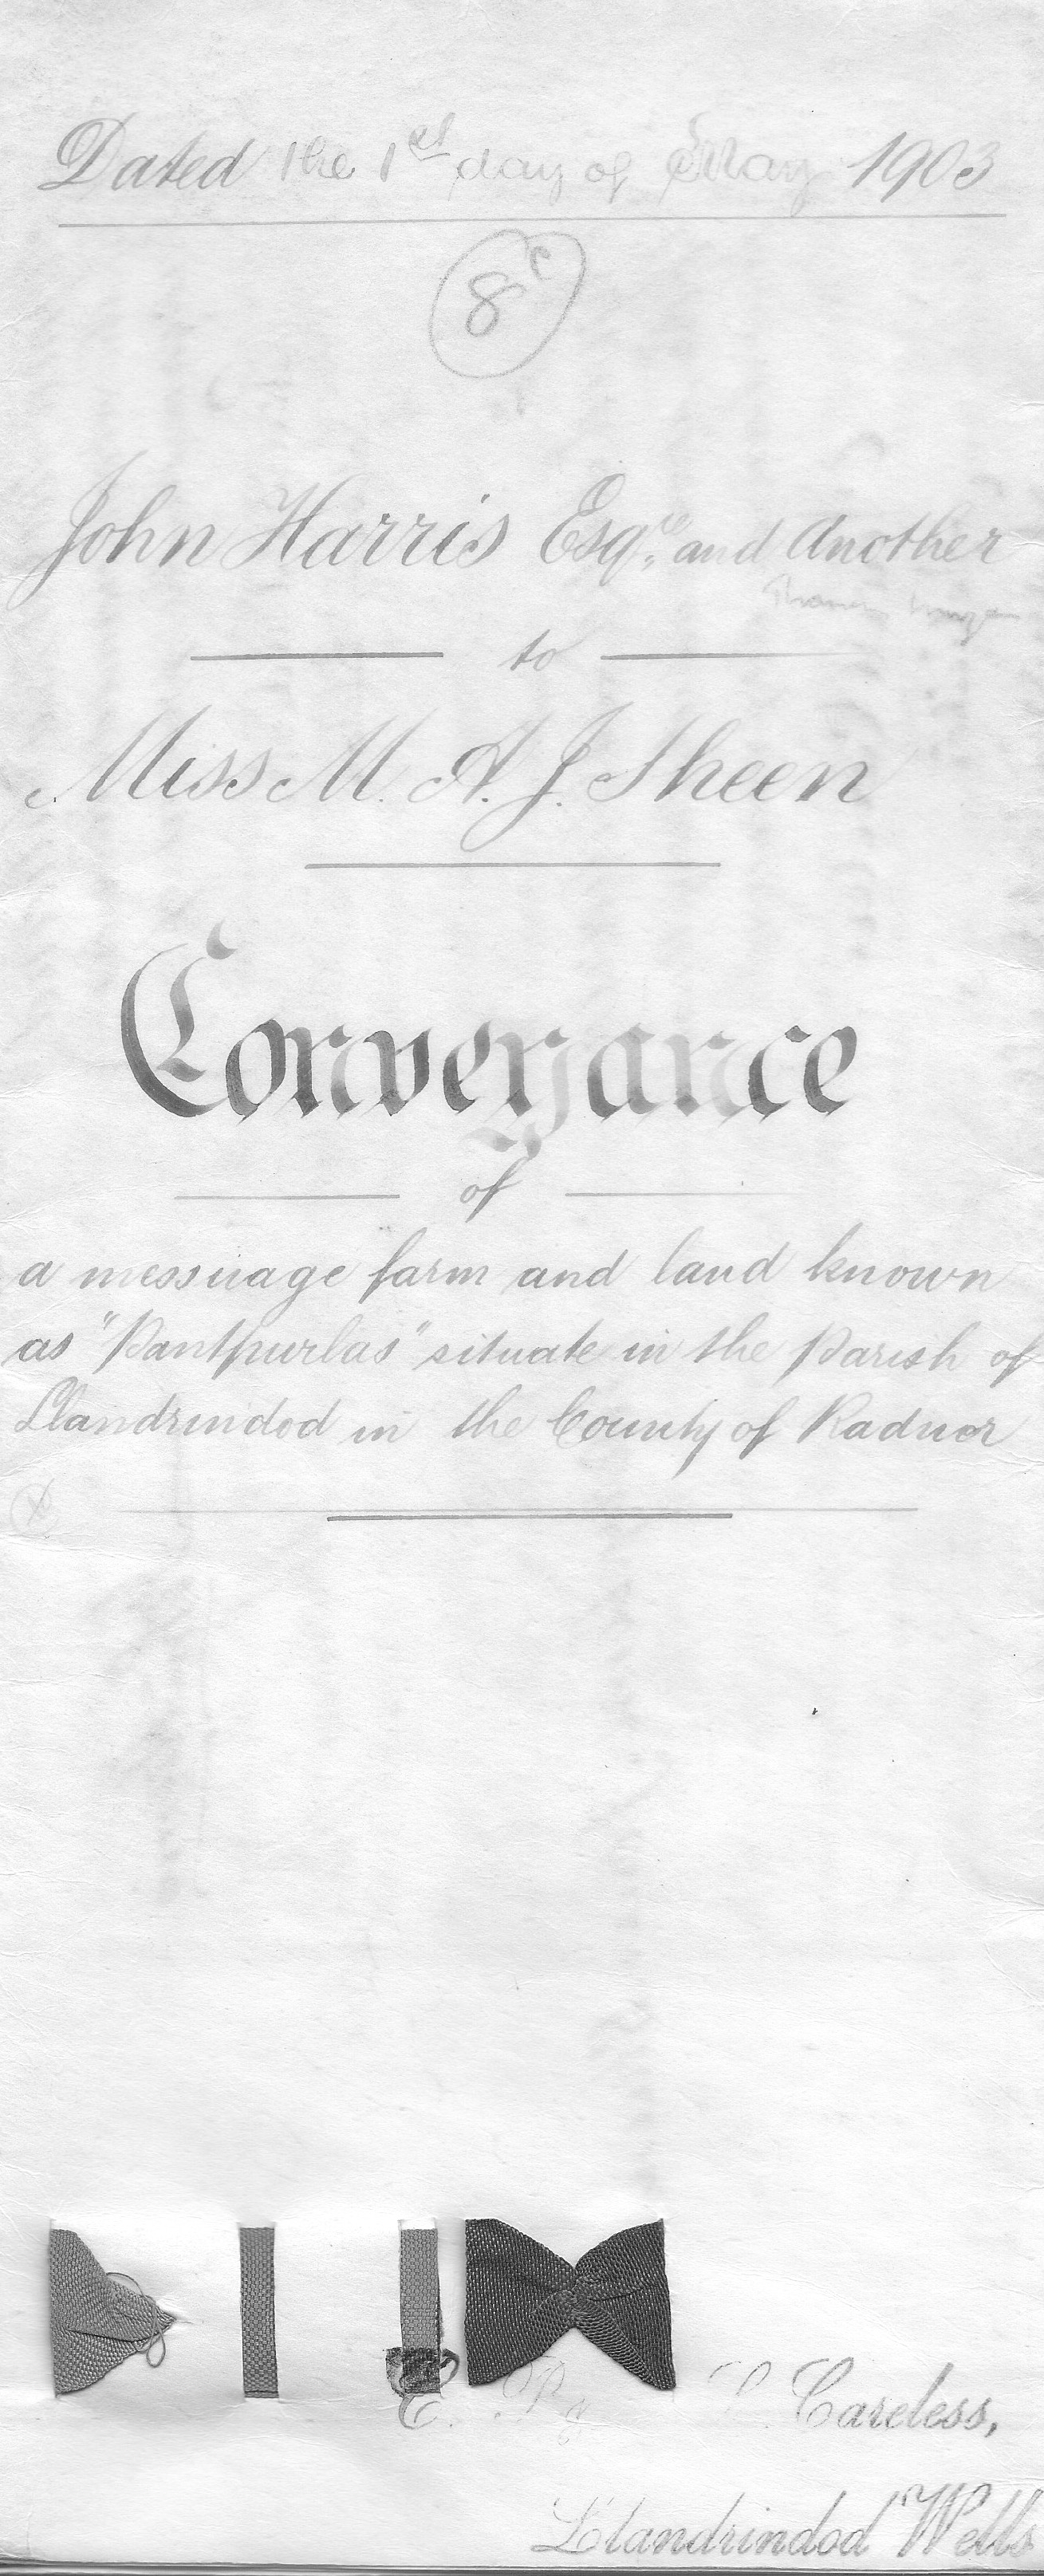 Dated the 1st day of May 1903
8c
John Harris Esqre, and Another
to
Miss M. A. J. Sheen
Conveyance
of
a messuage farm and land known
as "Pantpurlas" situate in the Parish of
Llandrindod in the County of Radnor
X
Careless,
Llandrindod Wells